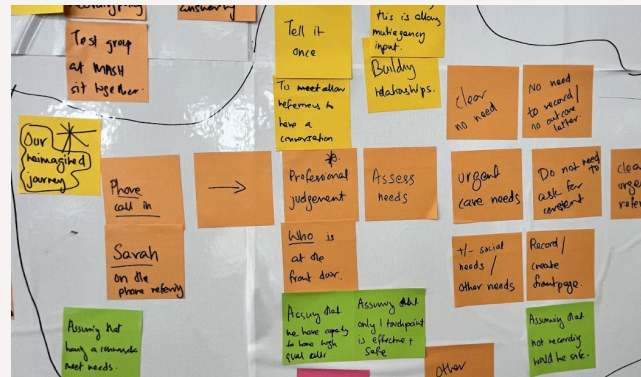 answering
Test group
at MASH
sit together.
Tell it
once
this is allow
multiagency
input.
To meet allow
referrers to
have a
conversation
Building
relationships.
clear
no need
No need
to record/
no outcome
letter.
Our
reimagined
journey
Phone
call in
→
Professional
judgement
Assess
needs
urgent
care needs
Do not need to
ask for
consent
clea
urge
refer
Sarah
on the
phone referring
Who is
at the
front door.
+/- social
needs /
other needs
Record/
create
frontpage.
Assuming that
having a
meet needs.
Assuming that
we have capacity
to have high
qual calls
Assuming that
only 1 touchpoint
is effective +
safe
Assuming that
not recording
would be safe.
Other